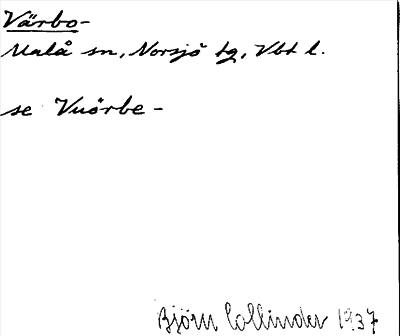 Värbo-
Malå sn, Norsjö tg, Vbt l.
se Vuörbe-
Björn Collinder 1937